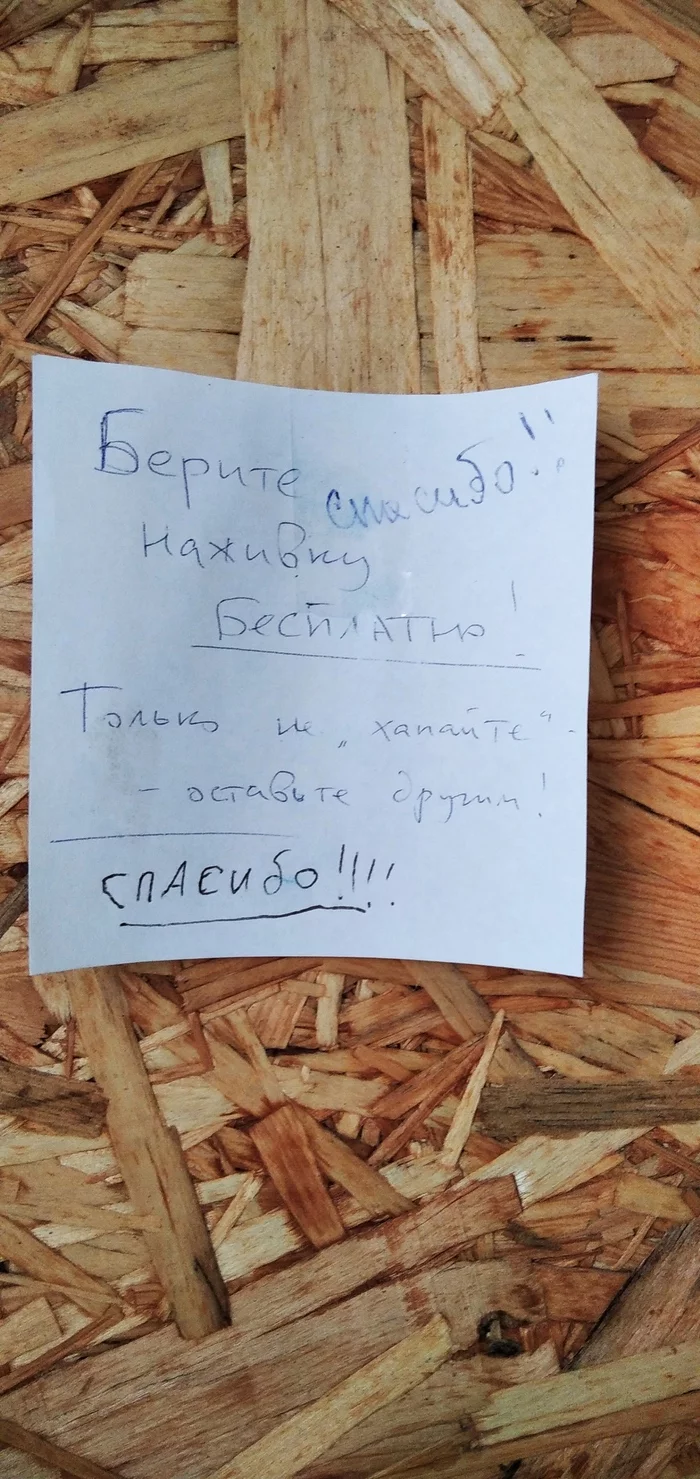 Берите спасибо!!
наживку
Бесплатно!
Только не „хапайте“-
- оставьте другим!
СПАСИбО!!!!